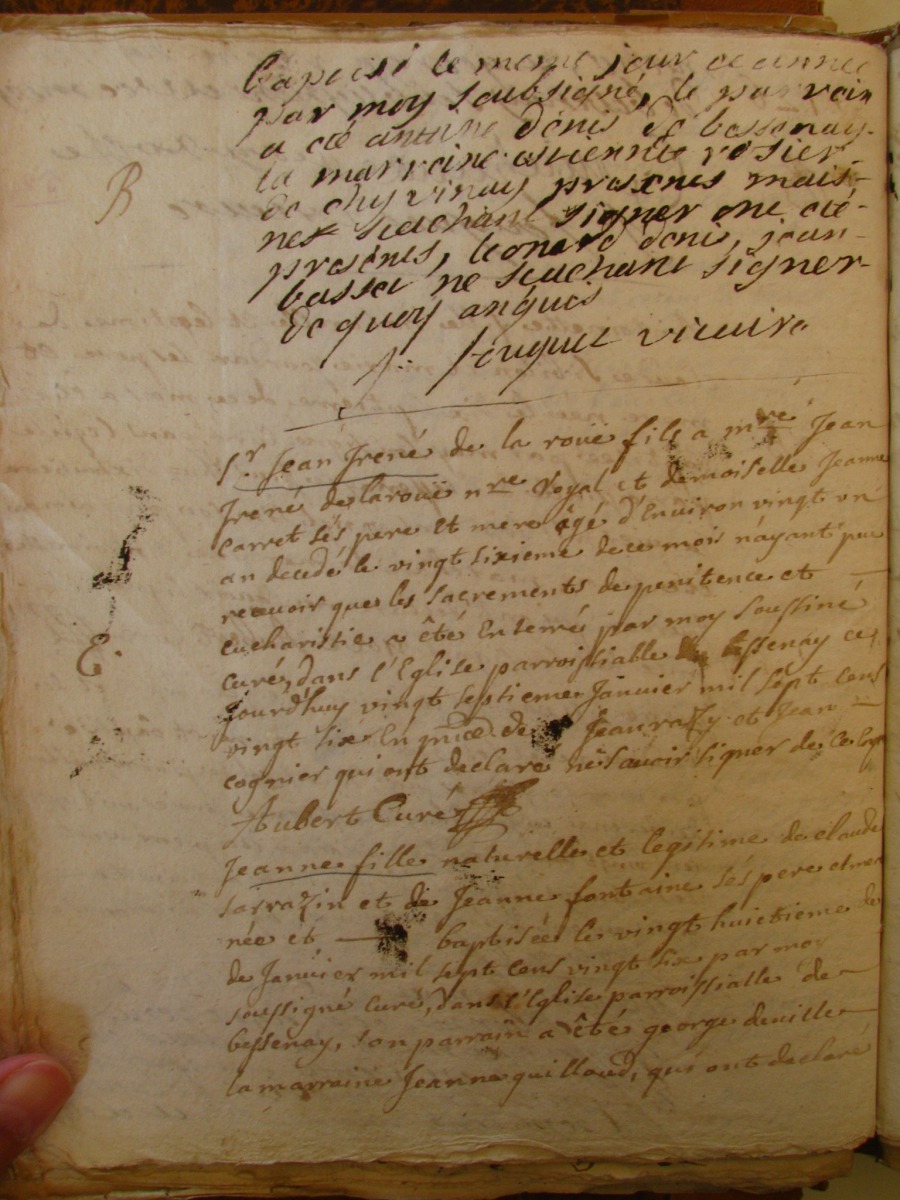 baptisé le meme jour et année
par moy soubsigné, le parrain
a eté antoine denis de bessenay
la marraine estiennette rosier
de chyvinay presens mais
ne scachant signer ont eté
presens, leonard denis, jean
basset ne scachant signer
de quoy anquis
B
fouquet vicaire
Sr. Jean Irené de la rouë fils a mre Jean
Irené de laroue nre Royal et demoiselle Jeanne
Carret ses pere et mere âgé d'Enuiron vingt vn
an decedé le vingt sixieme de ce mois n'ayant peu
receuoir que les sacrements de penitence et
eucharistie a êté Enterré par moy soussiné
curé, dans l'Eglise parroissialle de bessenay ce
Jourd'huy vingt septieme Januier mil sept cens
vingt six En pnce de Jean razy et Jean
cognier qui ont declaré ne sauoir signer de ce
E.
Aubert Curé
Jeanne fille naturelle et legitime de claude
sarrazin et de Jeanne fontaine ses pere et mere
née et baptisée le vingt huictieme de
de Januier mil sept cens vingt six par moy
soussigné curé, dans l'Eglise parroissialle de
bessenay, son parrain a êté george deuille
la marraine Jeanne guillaud, qui ont declaré